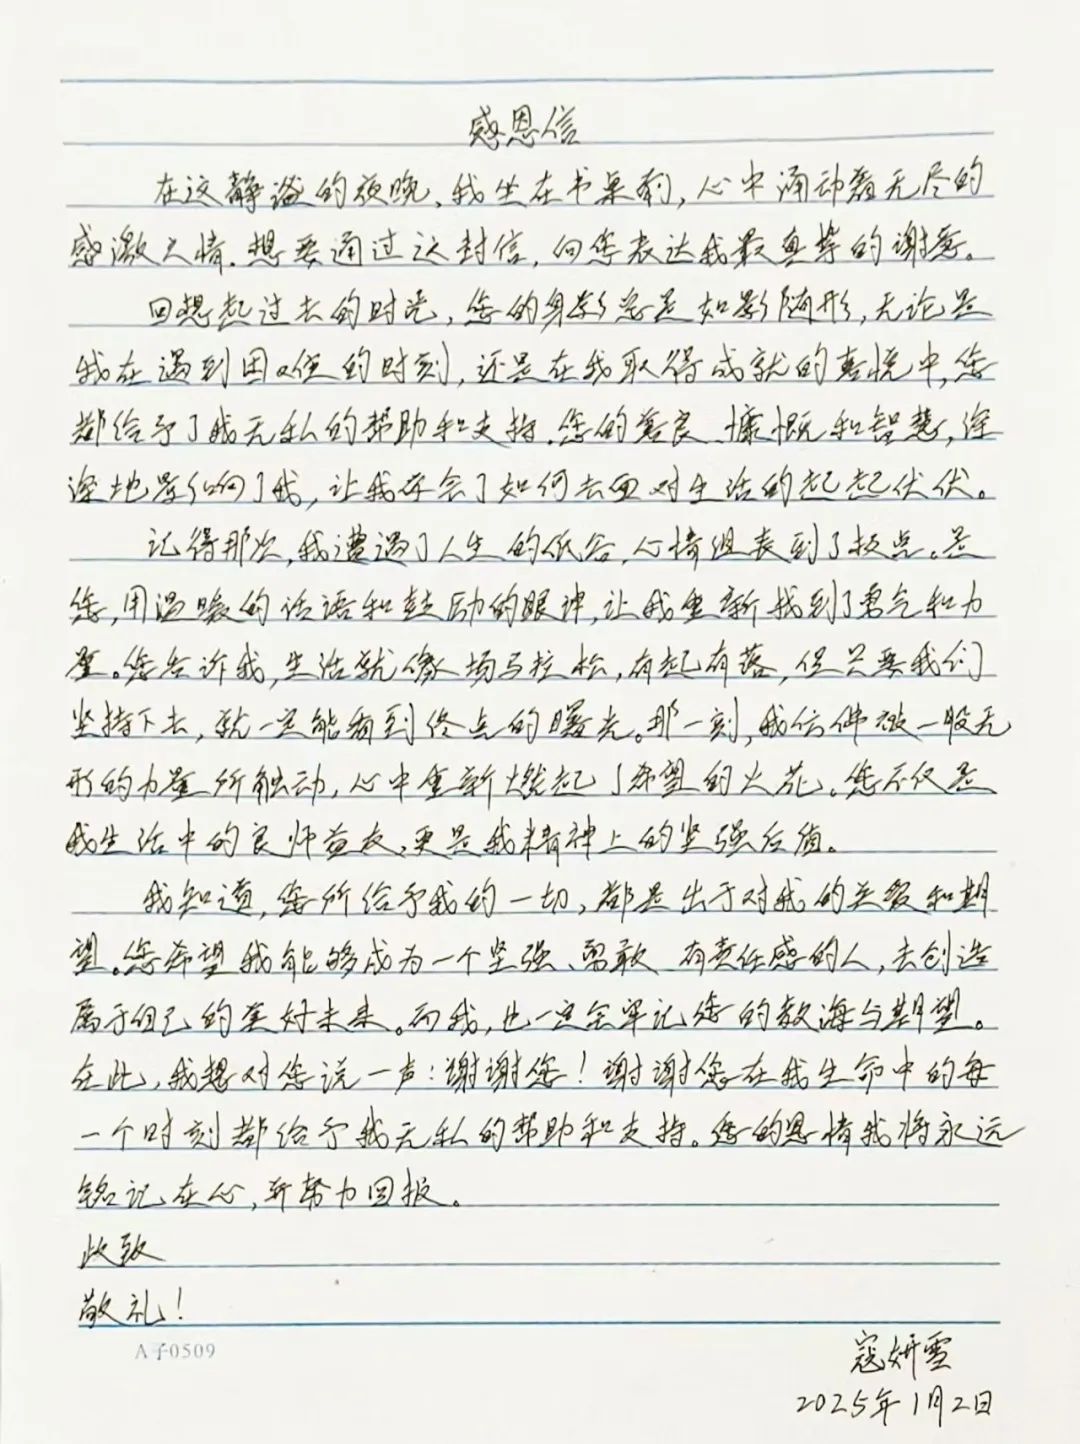 感恩信
在这静谧的夜晚，我坐在书桌前，心中涌动着无尽的
感激之情，想要通过这封信，向您表达我最真挚的谢意。
回想起过去的时光，您的身影总是如影随形，无论是
我在遇到困难的时刻，还是在我取得成就的喜悦中，您
都给予了我无私的帮助和支持。您的善良、慷慨和智慧，深
深地影响了我，让我学会了如何去面对生活的起起伏伏。
记得那次，我遭遇了人生的低谷，心情沮丧到了极点。是
您，用温暖的话语和鼓励的眼神，让我重新找到了勇气和力
量。您告诉我，生活就像场马拉松，有起有落，但只要我们
坚持下去，就一定能看到终点的曙光。那一刻，我仿佛被一股无
形的力量所触动，心中重新燃起了希望的火花。您不仅是
我生活中的良师益友，更是我精神上的坚强后盾。
我知道，您所给予我的一切，都是出于对我的关爱和期
望。您希望我能够成为一个坚强、勇敢 有责任感的人，去创造
属于自己的美好未来。而我，也一定会牢记您的教诲与期望。
在此，我想对您说一声：谢谢您！谢谢您在我生命中的每
一个时刻都给予我无私的帮助和支持。您的恩情我将永远
铭记在心，并努力回报。
此致
敬礼！
A子0509
寇妍雪
2025年1月2日